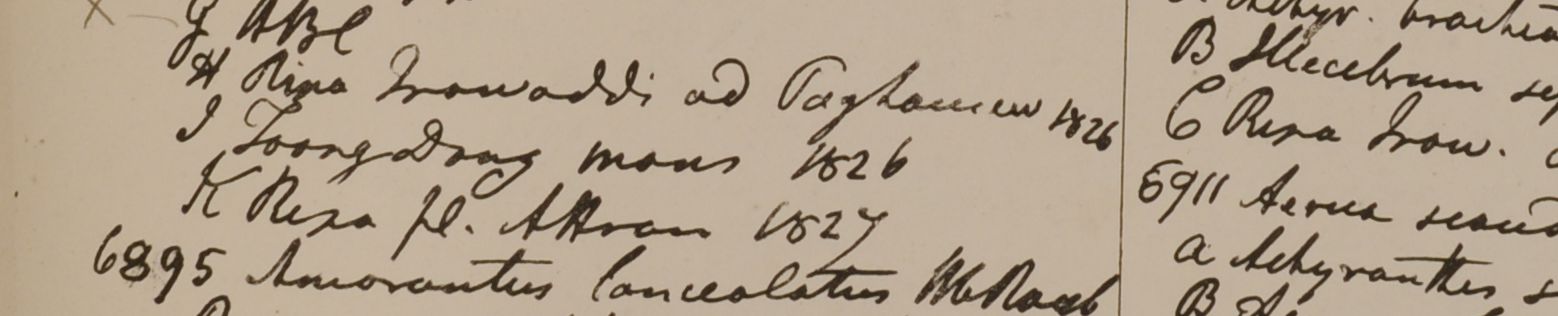 G HBC
H Ripa Irawaddi ad Paghamew 1826
I Toong Dong mons 1826
K Ripa fl. Attran 1827
6895 Amarantus lanceolatus Hb Roxb
B Illecebrum
C Ripa Iraw.
6911 Aerua scand
a Achyranthes s
B